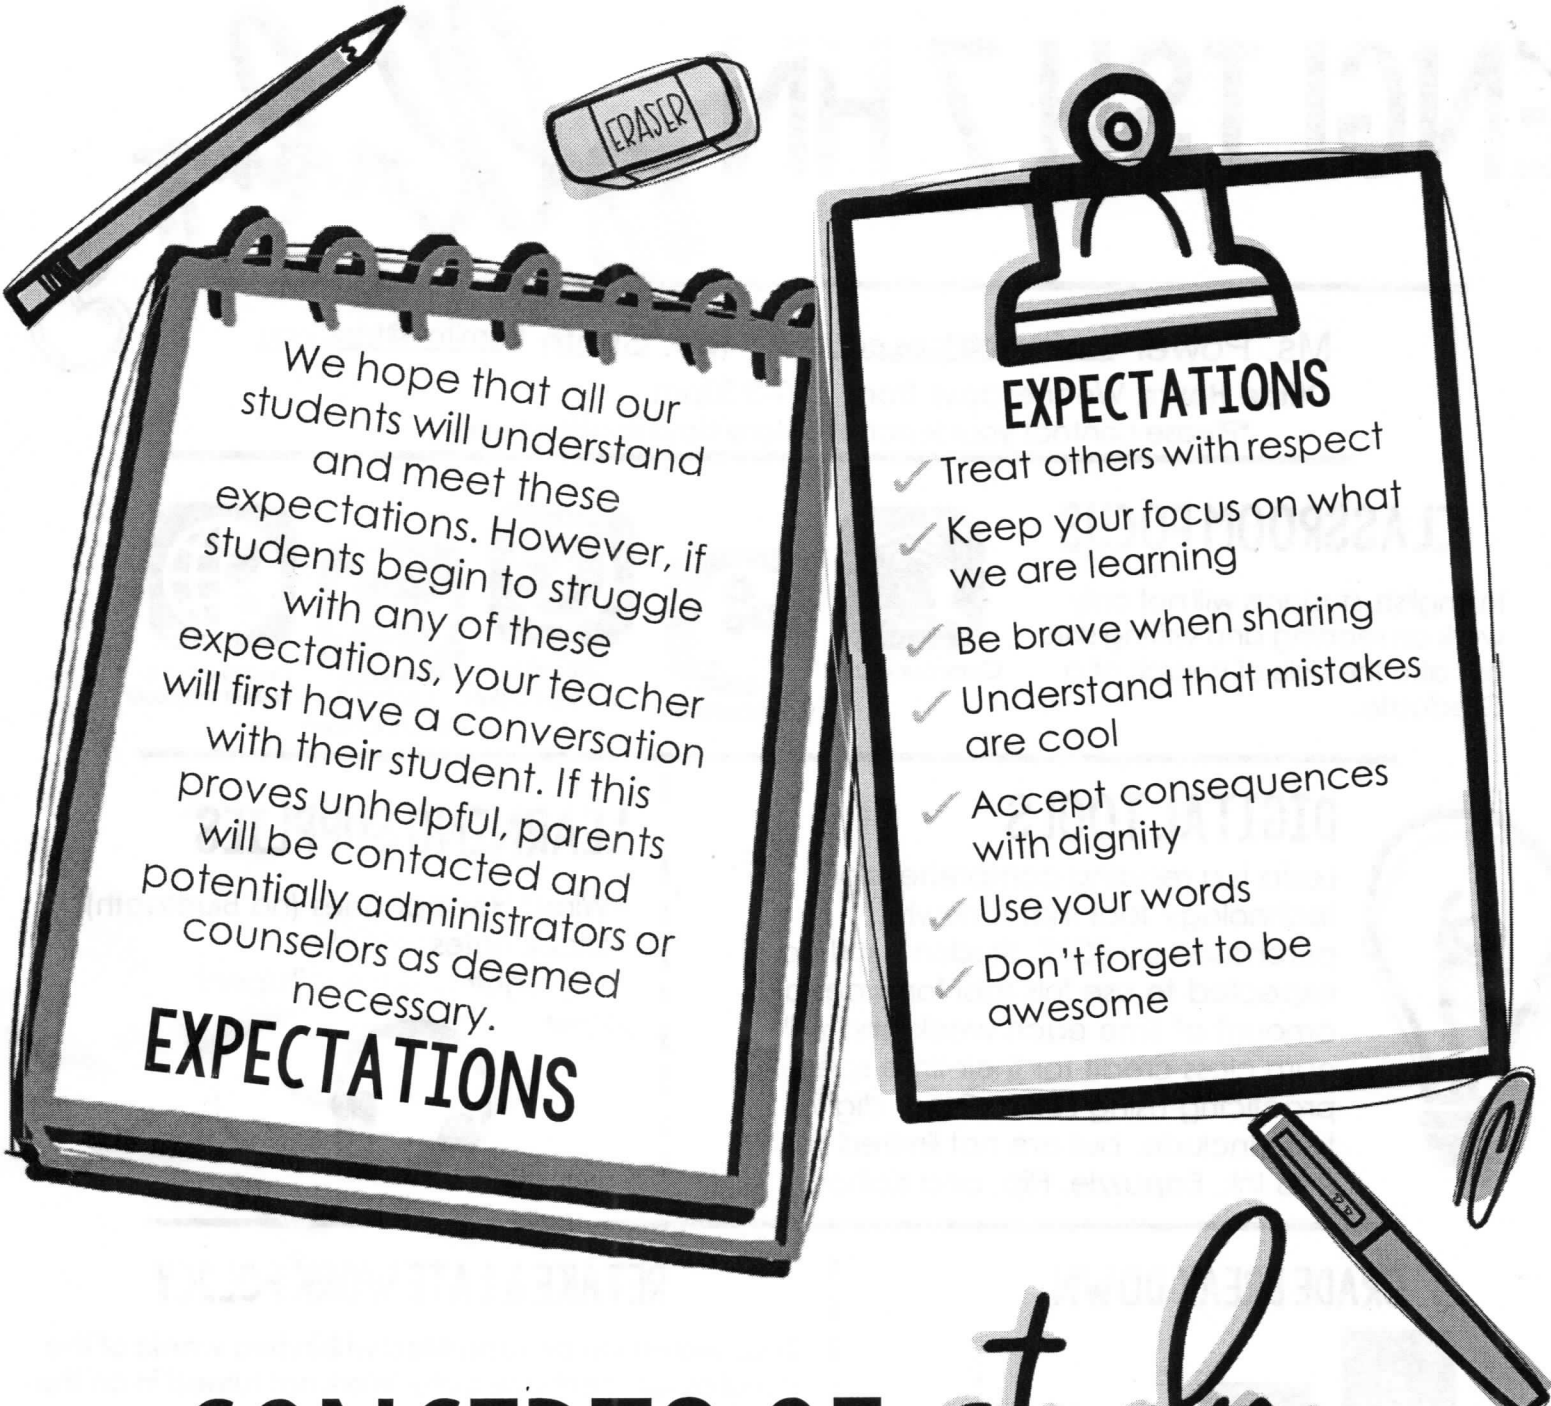 ERASER
We hope that all our
students will understand
and meet these
expectations. However, if
students begin to struggle
with any of these
expectations, your teacher
will first have a conversation
with their student. If this
proves unhelpful, parents
will be contacted and
potentially administrators or
counselors as deemed
necessary.
EXPECTATIONS
EXPECTATIONS
✓ Treat others with respect
✓ Keep your focus on what
we are learning
✓ Be brave when sharing
✓ Understand that mistakes
are cool
✓ Accept consequences
with dignity
✓ Use your words
✓ Don't forget to be
awesome